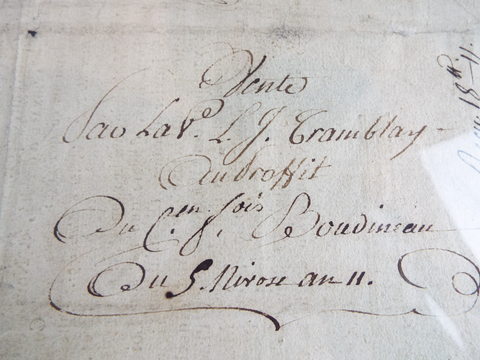 Vente
Par La Vᵉ. L. J. Tramblay
Au Proffit
Du C.en f.ois Boudineau
Du 5. Nivose an 11.